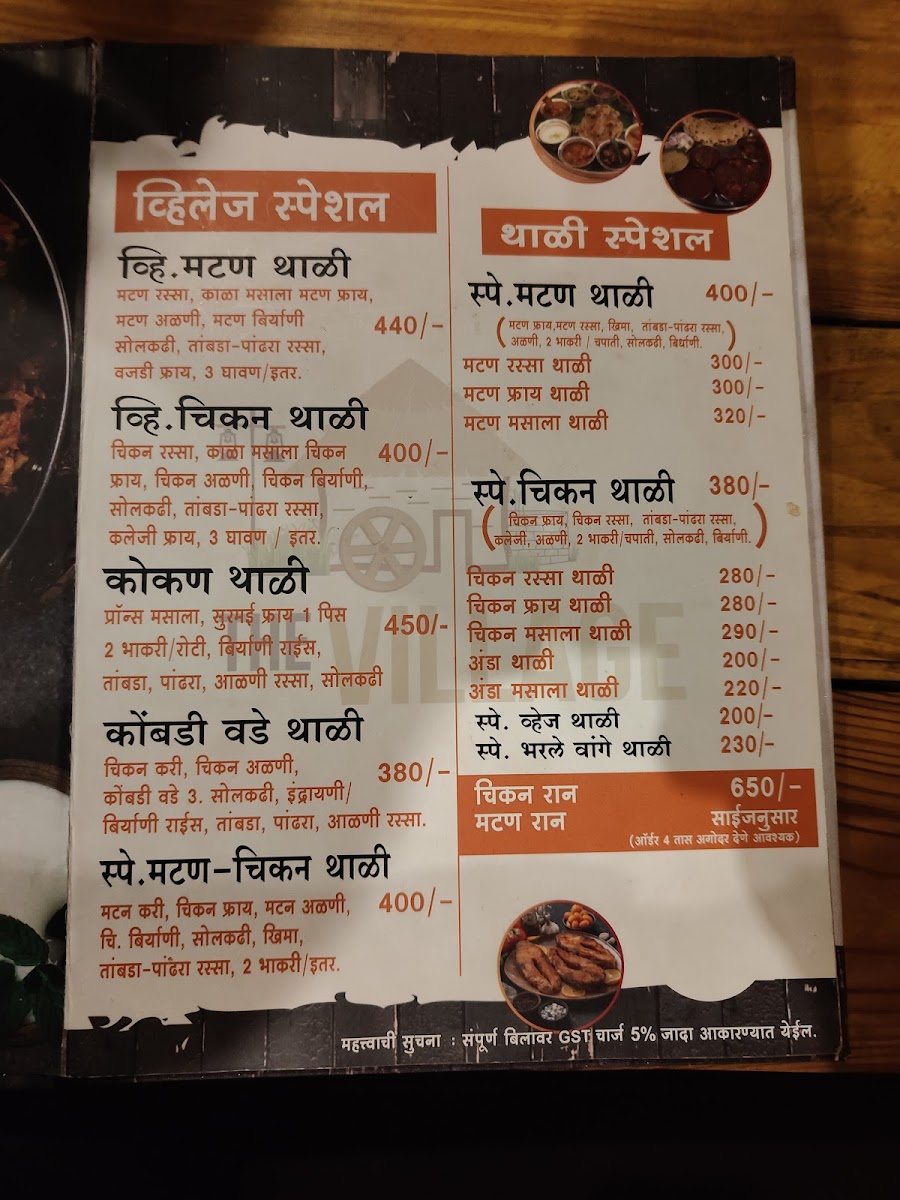 व्हिलेज स्पेशल
व्हि.मटण थाळी
मटण रस्सा, काळा मसाला मटण फ्राय,
मटण अळणी, मटण बिर्याणी
440/-
सोलकढी, तांबडा-पांढरा रस्सा,
वजडी फ्राय, 3 घावण/इतर.
व्हि.चिकन थाळी
चिकन रस्सा, काळा मसाला चिकन
400/-
फ्राय, चिकन अळणी, चिकन बिर्याणी,
सोलकढी, तांबडा-पांढरा रस्सा,
कलेजी फ्राय, 3 घावण / इतर.
कोकण थाळी
प्रॉन्स मसाला, सुरमई फ्राय 1 पिस
450/-
2 भाकरी/रोटी, बिर्याणी राईस,
तांबडा, पांढरा, आळणी रस्सा, सोलकढी
कोंबडी वडे थाळी
चिकन करी, चिकन अळणी,
380/-
कोंबडी वडे 3. सोलकढी, इंद्रायणी/
बिर्याणी राईस, तांबडा, पांढरा, आळणी रस्सा.
स्पे.मटण-चिकन थाळी
मटन करी, चिकन फ्राय, मटन अळणी,
400/-
चि. बिर्याणी, सोलकढी, खिमा,
तांबडा-पांढरा रस्सा, 2 भाकरी/इतर.
थाळी स्पेशल
स्पे.मटण थाळी 400/-
(मटण फ्राय,मटण रस्सा, खिमा, तांबडा-पांढरा रस्सा,
अळणी, 2 भाकरी / चपाती, सोलकढी, बिर्याणी.)
मटण रस्सा थाळी 300/-
मटण फ्राय थाळी 300/-
मटण मसाला थाळी 320/-
स्पे.चिकन थाळी 380/-
(चिकन फ्राय, चिकन रस्सा, तांबडा-पांढरा रस्सा,
कलेजी, अळणी, 2 भाकरी/चपाती, सोलकढी, बिर्याणी.)
चिकन रस्सा थाळी 280/-
चिकन फ्राय थाळी 280/-
चिकन मसाला थाळी 290/-
अंडा थाळी 200/-
अंडा मसाला थाळी 220/-
स्पे. व्हेज थाळी 200/-
स्पे. भरले वांगे थाळी 230/-
चिकन रान 650/-
मटण रान साईजनुसार
(ऑर्डर 4 तास अगोदर देणे आवश्यक)
THE VILLAGE
महत्त्वाची सुचना : संपूर्ण बिलावर GST चार्ज 5% जादा आकारण्यात येईल.